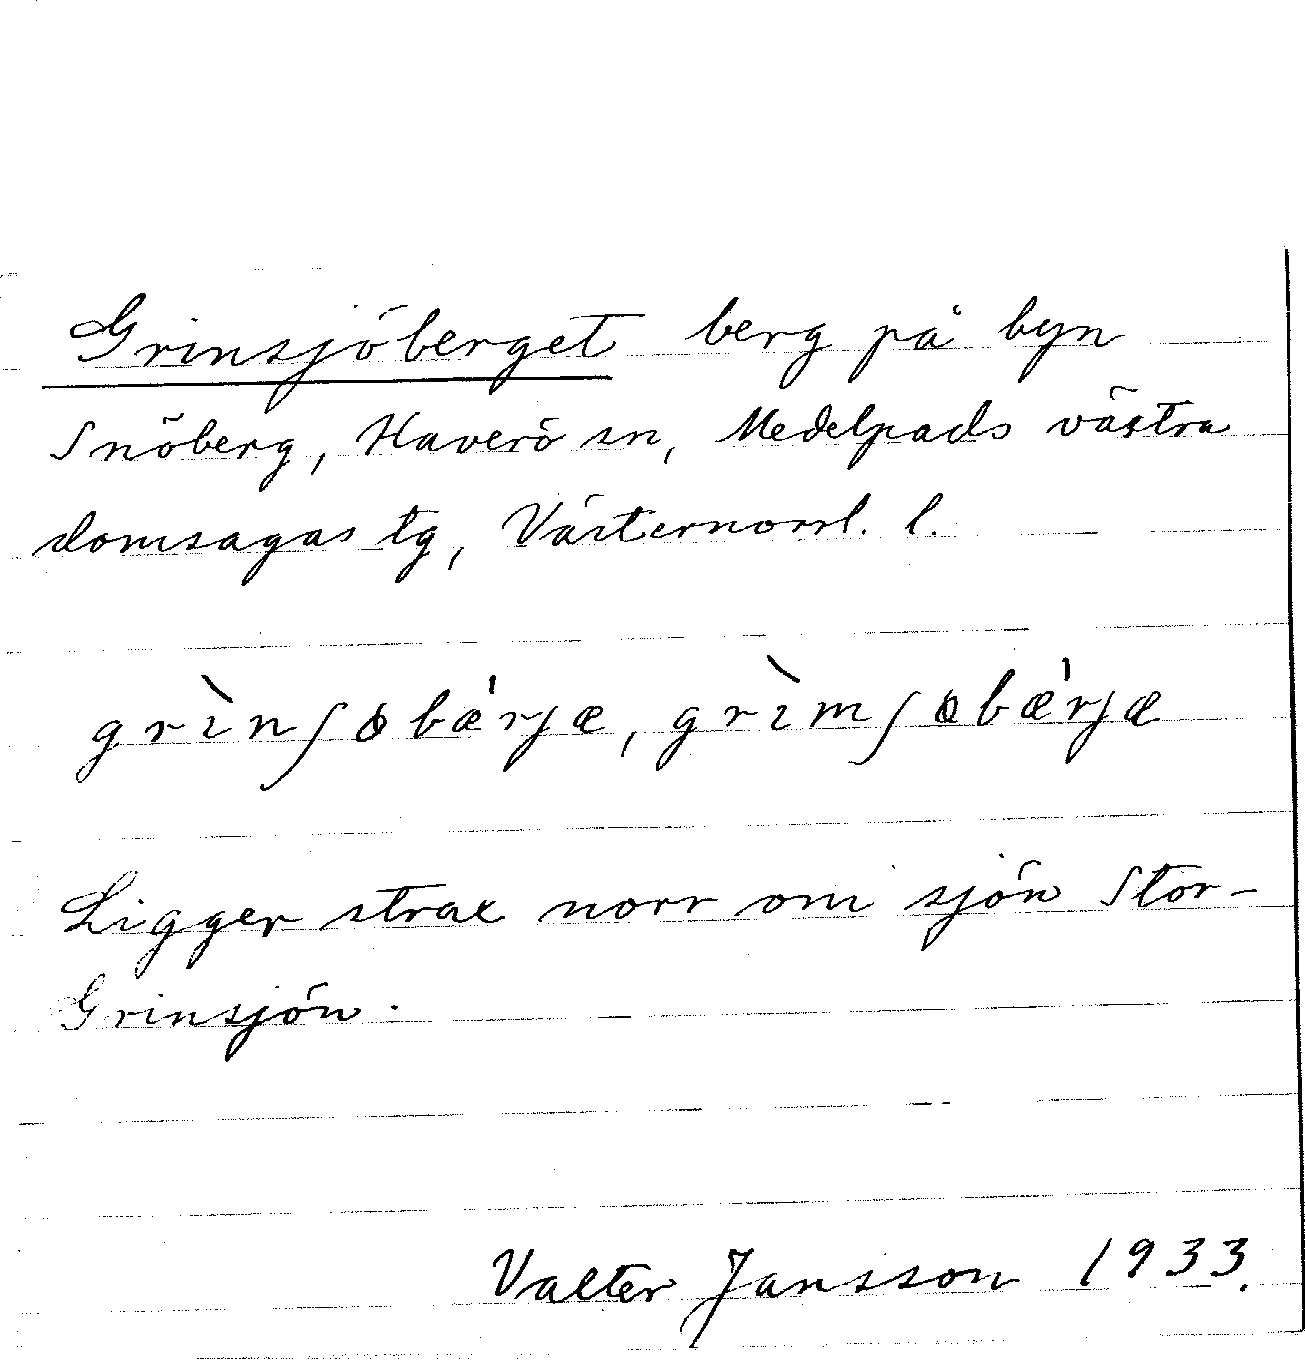 Grinsjöberget berg på byn
Snöberg, Haverö sn, Medelpads västra
domsagas tg, Västernorrl. l.
grı̀nʃɵbæ̀rjæ, grı̀mʃɵbæ̀rjæ
Ligger strax norr om sjön Stor-
Grinsjön.
Valter Jansson 1933.